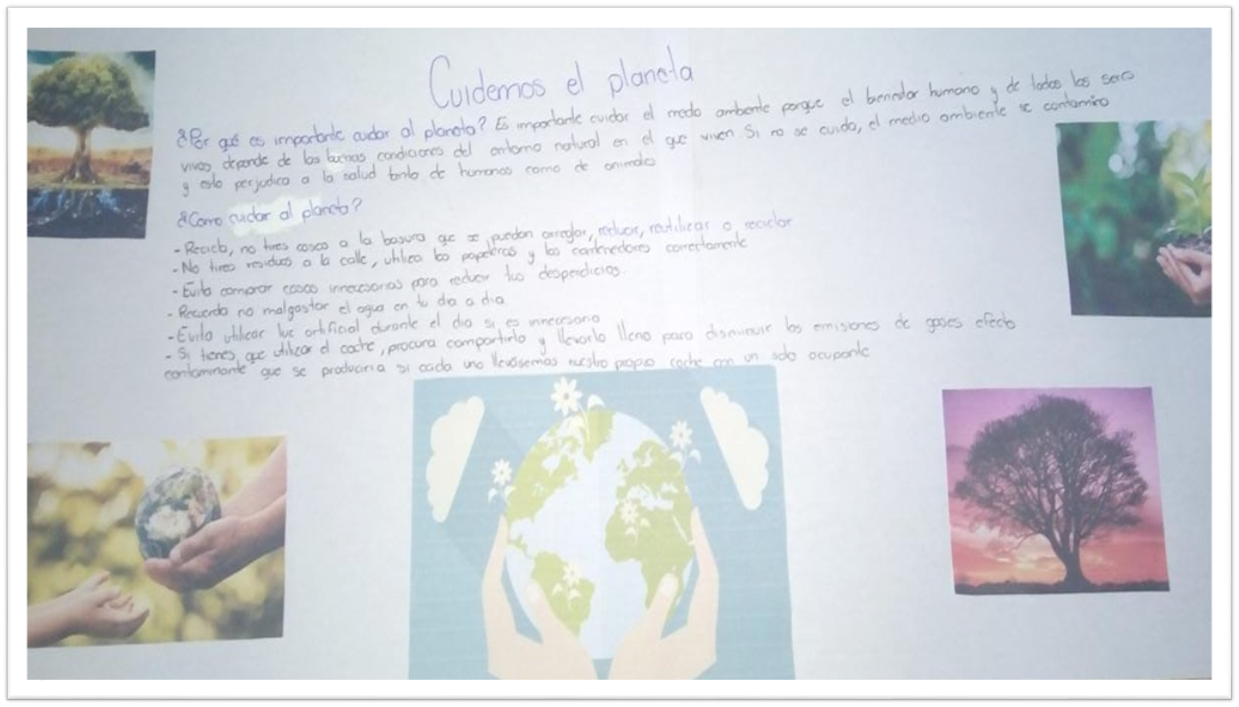 Cuidemos el planeta
¿Por qué es importante cuidar al planeta? Es importante cuidar el medio ambiente porque el bienestar humano y de todos los seres
vivos depende de las buenas condiciones del entorno natural en el que viven Si no se cuida, el medio ambiente se contamina
y esto perjudica a la salud tanto de humanos como de animales
¿Como cuidar al planeta?
- Recicla, no tires cosas a la basura que se puedan arreglar, reducir, reutilizar o reciclar
- No tires residuos a la calle, utiliza las papeleras y los contenedores correctamente
- Evita comprar cosas innecesarias para reducir tus desperdicios.
- Recuerda no malgastar el agua en tu dia a dia
- Evita utilizar luz artificial durante el dia si es innecesario
- Si tienes que utilizar el coche, procura compartirlo y llevarlo lleno para disminuir las emisiones de gases efecto
contaminante que se produciria si cada uno llevásemos nuestro propio coche con un solo ocupante